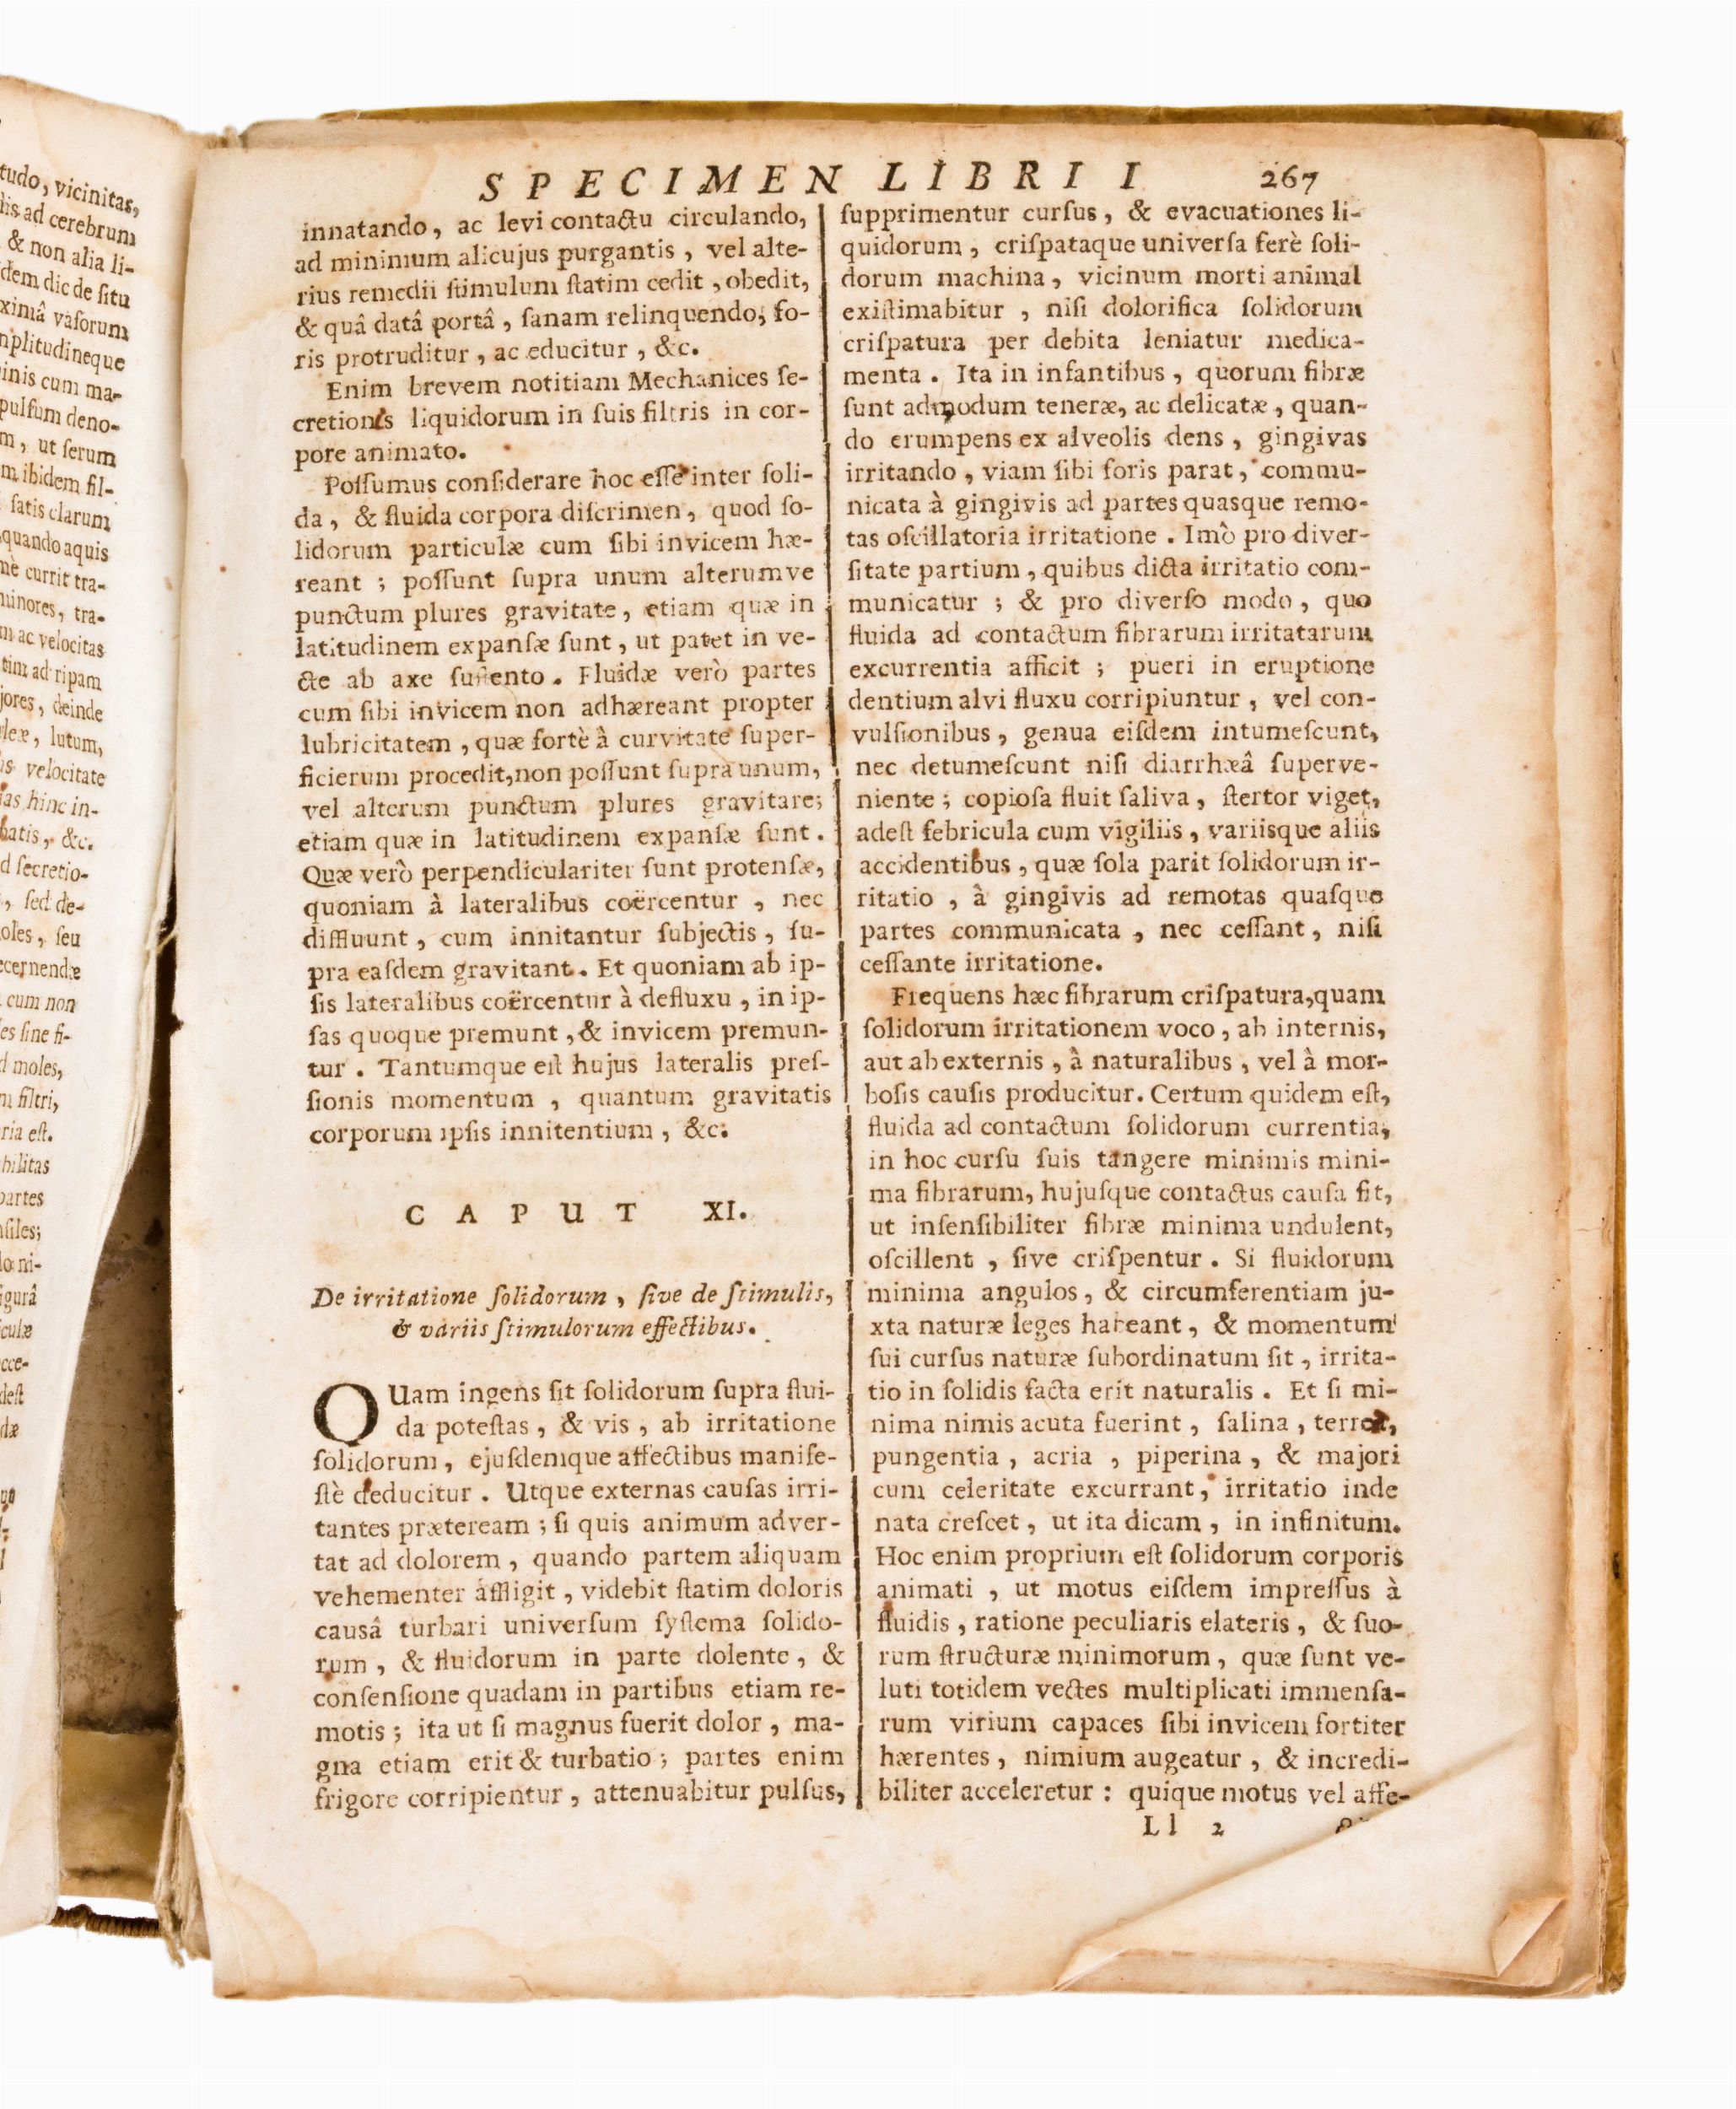 tudo, vicinitas,
lis ad cerebrum
& non alia li-
dem dic de ſitu
ximâ vaſorum
mplitudineque
inis cum ma-
pulſum deno-
m, ut ſerum
m ibidem fil-
ſatis clarum
quando aquis
me currit tra-
minores, tra-
m ac velocitas
tim ad ripam
jores, deinde
leæ, lutum,
is velocitate
ſas hinc in-
batis, &c.
d ſecretio-
, ſed de-
oles, ſeu
ecernendæ
cum non
es ſine fi-
d moles,
m filtri,
ria eſt.
bilitas
partes
ſiles;
lo ni-
igurâ
culæ
cce-
deſt
dæ
SPECIMEN LIBRI I 267
innatando, ac levi contactu circulando,
ad minimum alicujus purgantis, vel alte-
rius remedii ſtimulum ſtatim cedit, obedit,
& quâ datâ portâ, ſanam relinquendo, fo-
ris protruditur, ac educitur, &c.
Enim brevem notitiam Mechanices ſe-
cretionis liquidorum in ſuis filtris in cor-
pore animato.
Poſſumus conſiderare hoc eſſe inter ſoli-
da, & fluida corpora diſcrimen, quod ſo-
lidorum particulæ cum ſibi invicem hæ-
reant; poſſunt ſupra unum alterumve
punctum plures gravitate, etiam quæ in
latitudinem expanſæ ſunt, ut patet in ve-
cte ab axe ſuſtento. Fluidæ verò partes
cum ſibi invicem non adhæreant propter
lubricitatem, quæ fortè â curvitate ſuper-
ficierum procedit, non poſſunt ſupra unum,
vel alterum punctum plures gravitare;
etiam quæ in latitudinem expanſæ ſunt.
Quæ verò perpendiculariter ſunt protenſæ,
quoniam à lateralibus coërcentur, nec
diffluunt, cum innitantur ſubjectis, ſu-
pra eaſdem gravitant. Et quoniam ab ip-
ſis lateralibus coërcentur à defluxu, in ip-
ſas quoque premunt, & invicem premun-
tur. Tantumque eſt hujus lateralis preſ-
ſionis momentum, quantum gravitatis
corporum ipſis innitentium, &c.
CAPUT XI.
De irritatione ſolidorum, ſive de ſtimulis,
& variis ſtimulorum effectibus.
QUam ingens ſit ſolidorum ſupra flui-
da poteſtas, & vis, ab irritatione
ſolidorum, ejuſdemque affectibus manife-
ſtè deducitur. Utque externas cauſas irri-
tantes præteream; ſi quis animum adver-
tat ad dolorem, quando partem aliquam
vehementer áffligit, videbit ſtatim doloris
causâ turbari univerſum ſyſtema ſolido-
rum, & fluidorum in parte dolente, &
conſenſione quadam in partibus etiam re-
motis; ita ut ſi magnus fuerit dolor, ma-
gna etiam erit & turbatio; partes enim
frigore corripientur, attenuabitur pulſus,
ſupprimentur curſus, & evacuationes li-
quidorum, criſpataque univerſa ferè ſoli-
dorum machina, vicinum morti animal
exiſtimabitur, niſi dolorifica ſolidorum
criſpatura per debita leniatur medica-
menta. Ita in infantibus, quorum fibræ
ſunt admodum teneræ, ac delicatæ, quan-
do erumpens ex alveolis dens, gingivas
irritando, viam ſibi foris parat, commu-
nicata à gingivis ad partes quasque remo-
tas oſcillatoria irritatione. Imò pro diver-
ſitate partium, quibus dicta irritatio com-
municatur; & pro diverſo modo, quo
fluida ad contactum fibrarum irritatarum
excurrentia afficit; pueri in eruptione
dentium alvi fluxu corripiuntur, vel con-
vulſionibus, genua eiſdem intumeſcunt,
nec detumeſcunt niſi diarrhæâ ſuperve-
niente; copioſa fluit ſaliva, ſtertor viget,
adeſt febricula cum vigiliis, variisque aliis
accidentibus, quæ ſola parit ſolidorum ir-
ritatio, à gingivis ad remotas quaſque
partes communicata, nec ceſſant, niſi
ceſſante irritatione.
Frequens hæc fibrarum criſpatura, quam
ſolidorum irritationem voco, ab internis,
aut ab externis, â naturalibus, vel à mor-
boſis cauſis producitur. Certum quidem eſt,
fluida ad contactum ſolidorum currentia,
in hoc curſu ſuis tangere minimis mini-
ma fibrarum, hujuſque contactus cauſa fit,
ut inſenſibiliter fibræ minima undulent,
oſcillent, ſive criſpentur. Si fluidorum
minima angulos, & circumferentiam ju-
xta naturæ leges habeant, & momentum
ſui curſus naturæ ſubordinatum ſit, irrita-
tio in ſolidis facta erit naturalis. Et ſi mi-
nima nimis acuta fuerint, ſalina, terrea,
pungentia, acria, piperina, & majori
cum celeritate excurrant, irritatio inde
nata creſcet, ut ita dicam, in infinitum.
Hoc enim proprium eſt ſolidorum corporis
animati, ut motus eiſdem impreſſus à
fluidis, ratione peculiaris elateris, & ſuo-
rum ſtructuræ minimorum, quæ ſunt ve-
luti totidem vectes multiplicati immenſa-
rum virium capaces ſibi invicem fortiter
hærentes, nimium augeatur, & incredi-
biliter acceleretur: quique motus vel affe-
Ll 2